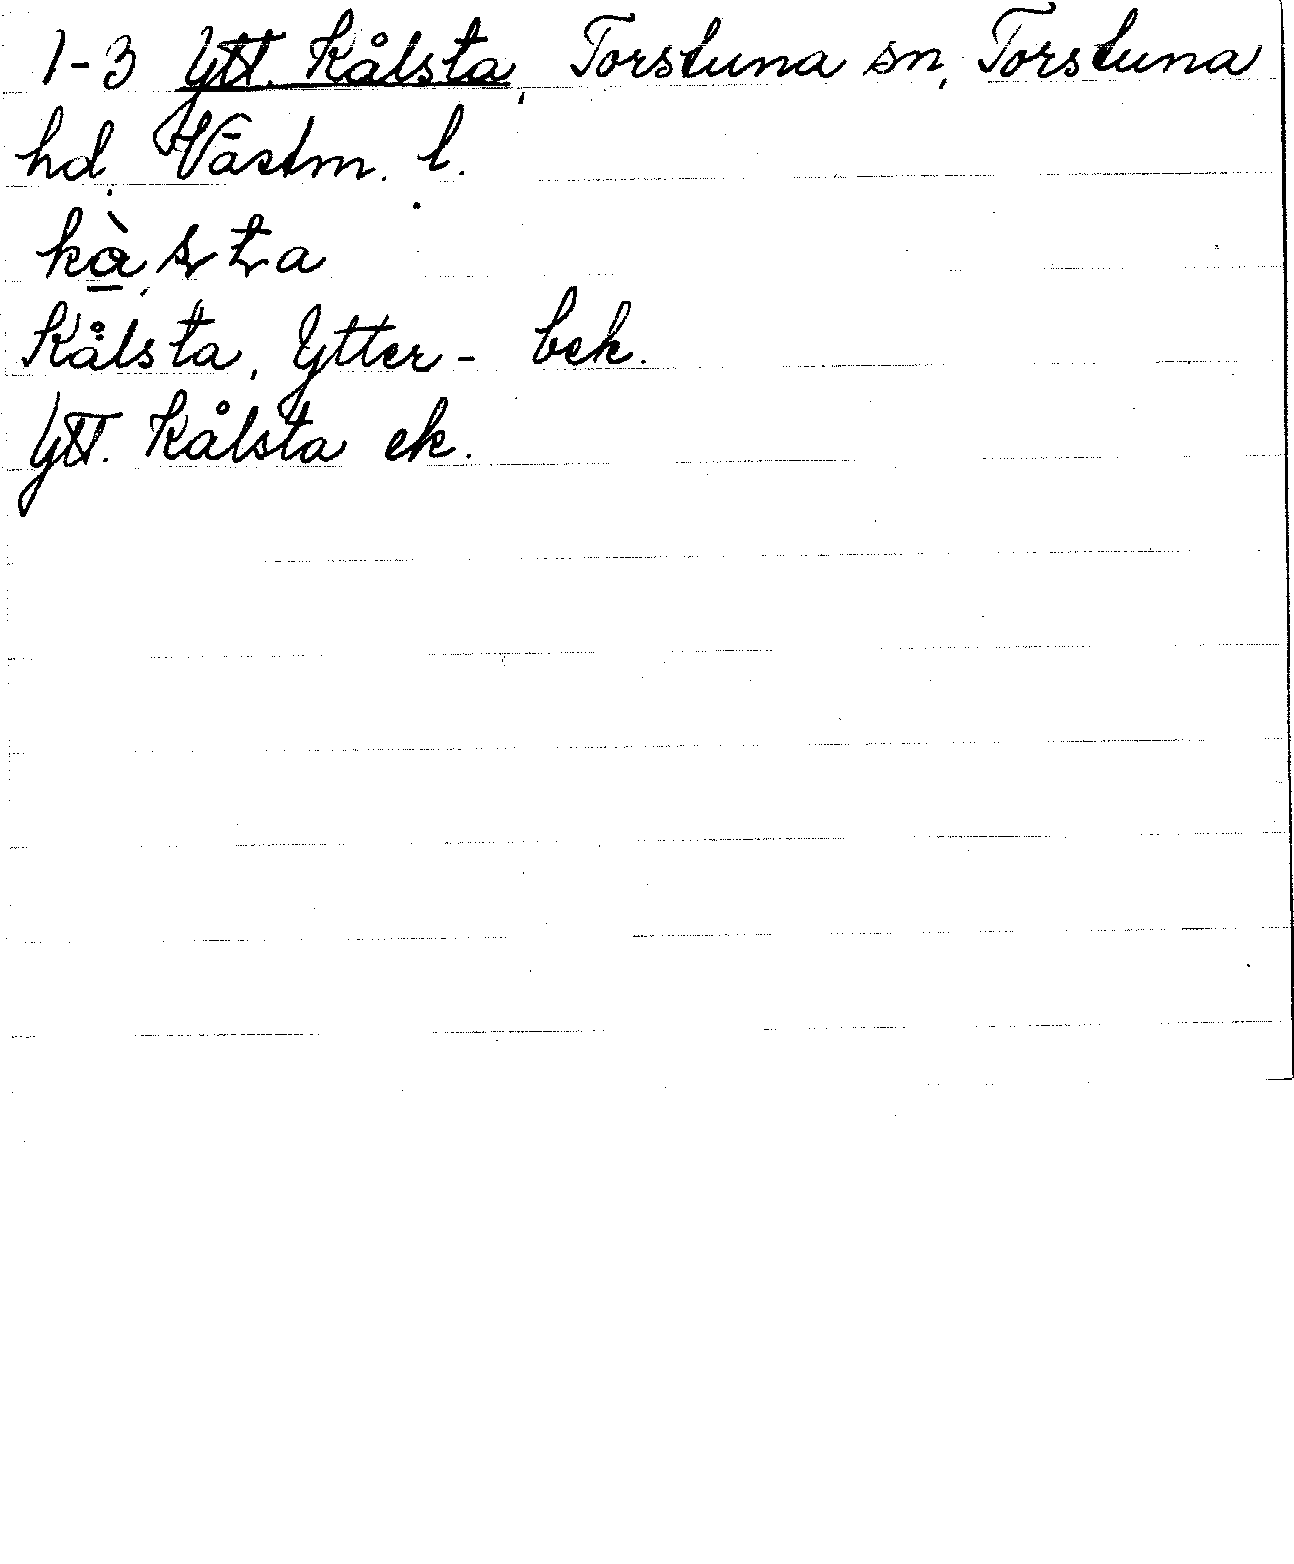 1-3 Ytt. Kålsta, Torstuna sn, Torstuna
hd, Västm. l.
Kålsta, Ytter- bek.
Ytt. Kålsta ek.